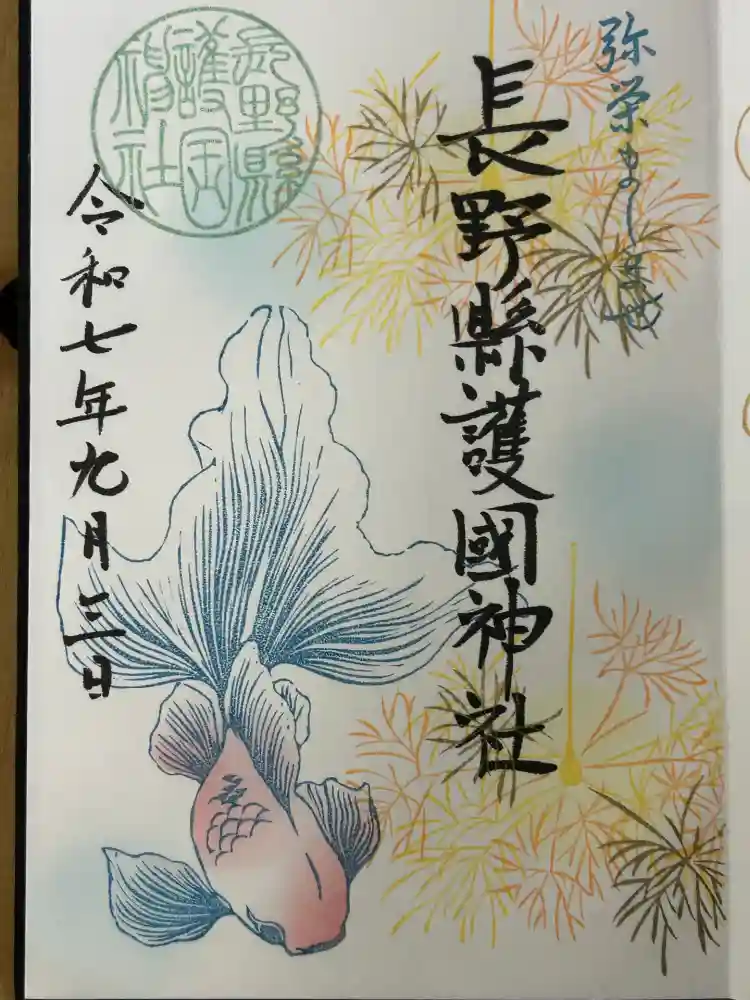 弥栄ましませ
長野縣護國神社
長野縣
護国
神社
令和七年九月三日